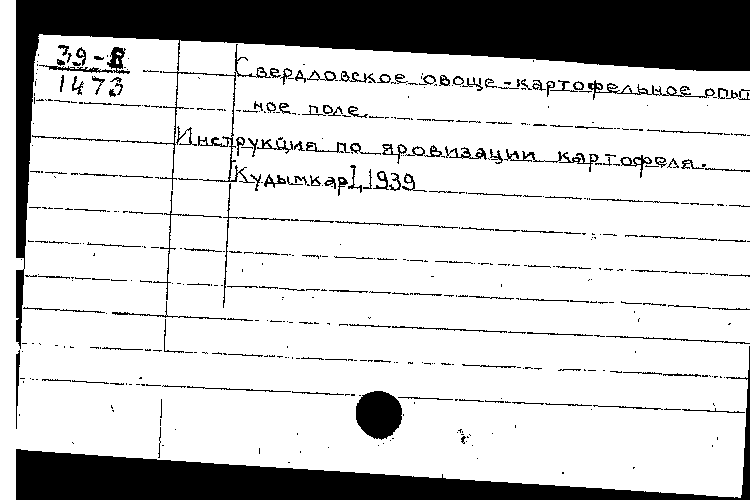 39-8
1473
Свердловское овоще-картофельное опыт
ное поле.
Инструкция по яровизации картофеля.
[Кудымкар], 1939